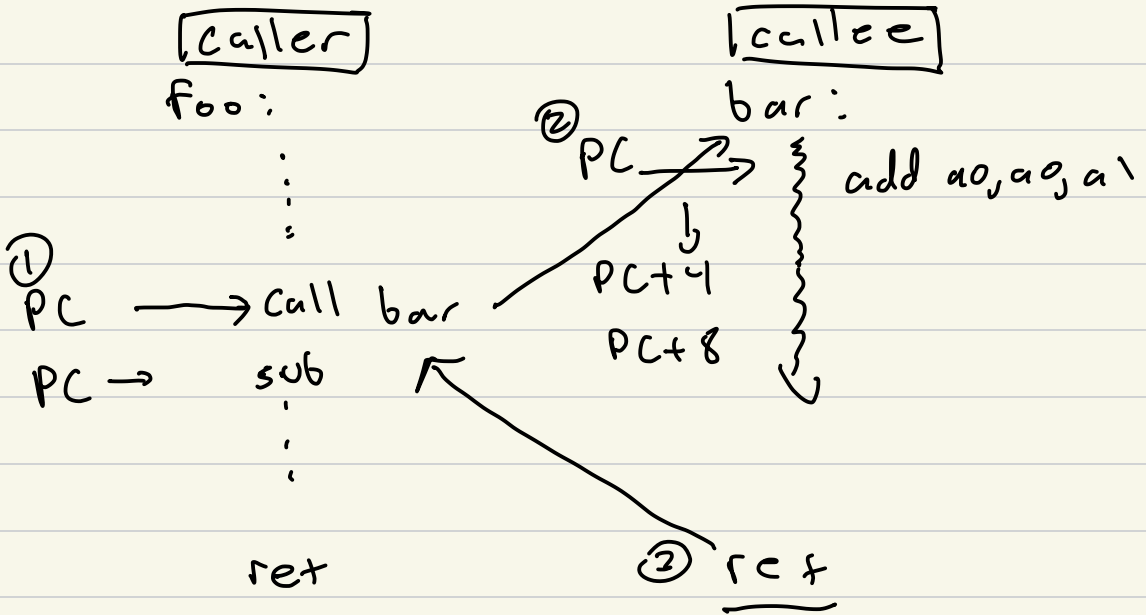 caller
foo:
① PC → call bar
PC → sub
ret
callee
bar:
② PC →
add a0, a0, a1
PC+4
PC+8
③ ret